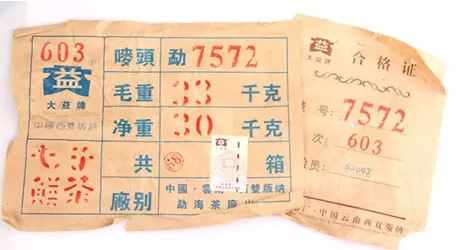 603 嘜頭 勐 7572
益 毛重 33 千克
大益牌
中國西雙版納 净重 30 千克
七子 共 箱
餅茶 廠别 中國·雲南西雙版納
勐海茶廠
益 合格证
大益牌
号: 7572
次: 603
员:
厂·中国云南西双版纳